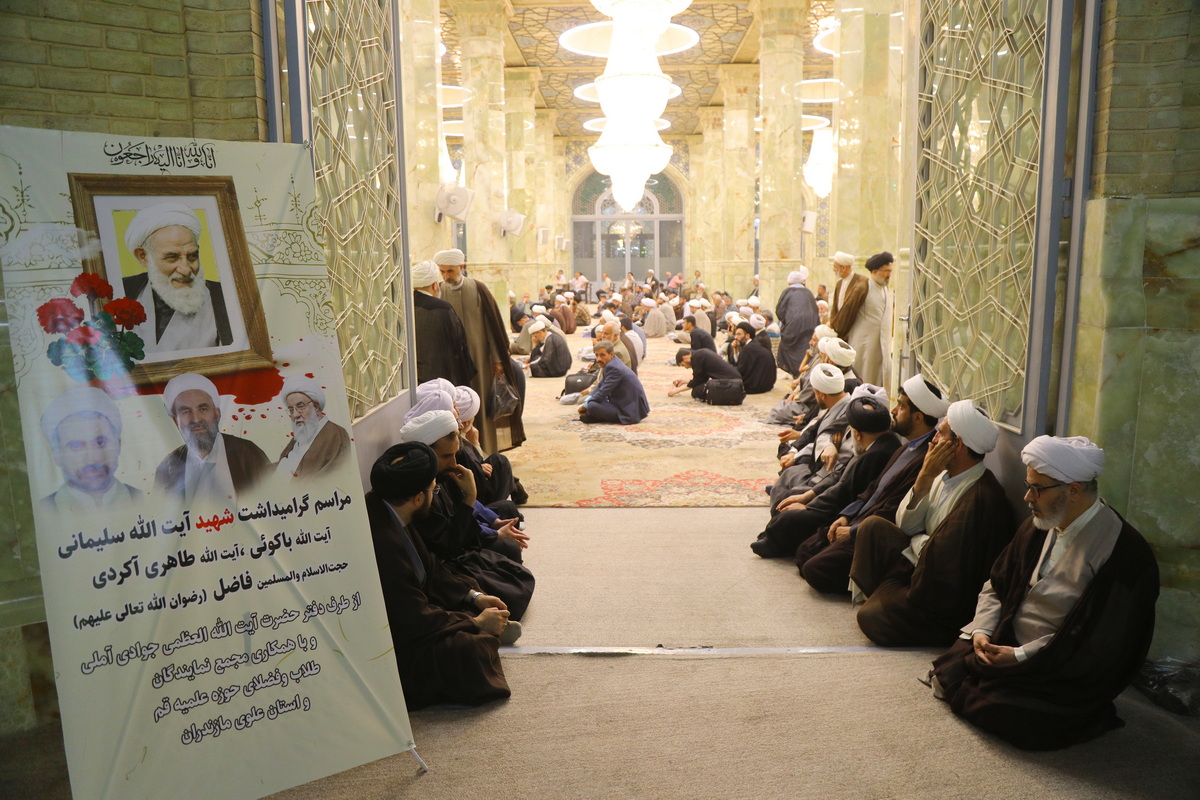 انا لله و انا الیه راجعون
مراسم گرامیداشت شهید آیت الله سلیمانی
آیت الله باکوئی ،آیت الله طاهری آکردی
حجت‌الاسلام والمسلمین فاضل (رضوان الله تعالی علیهم)
از طرف دفتر حضرت آیت الله العظمی جوادی آملی
و با همکاری مجمع نمایندگان
طلاب وفضلای حوزه علمیه قم
و استان علوی مازندران